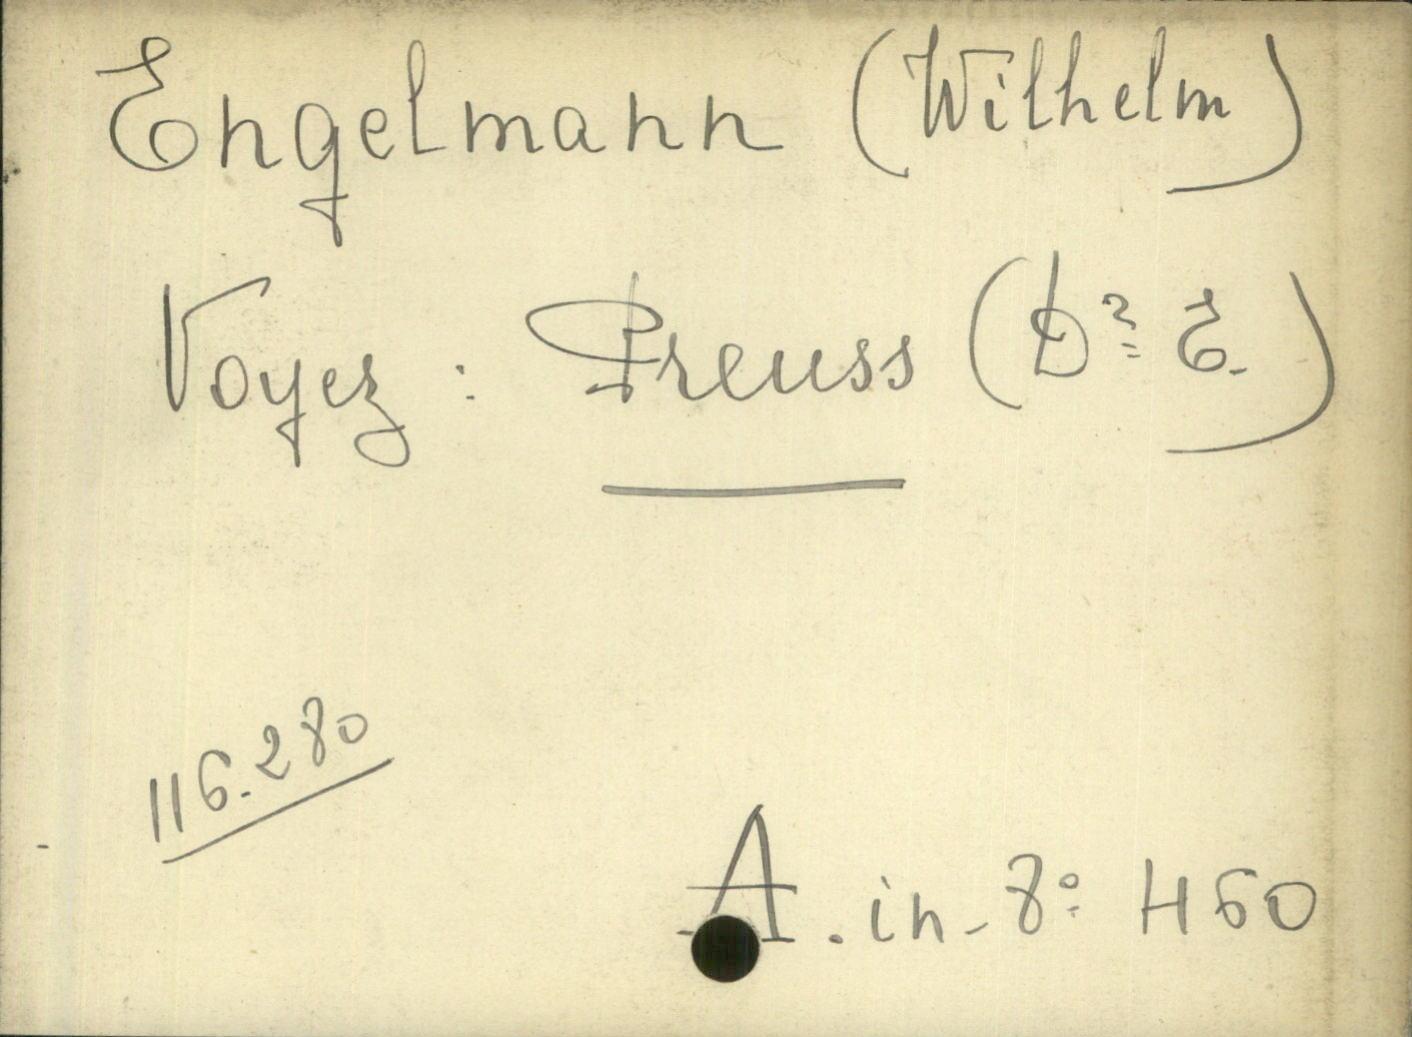 Engelmann (Wilhelm)
Voyez : Preuss (Dr E.)
116.280
A. in-8° H60